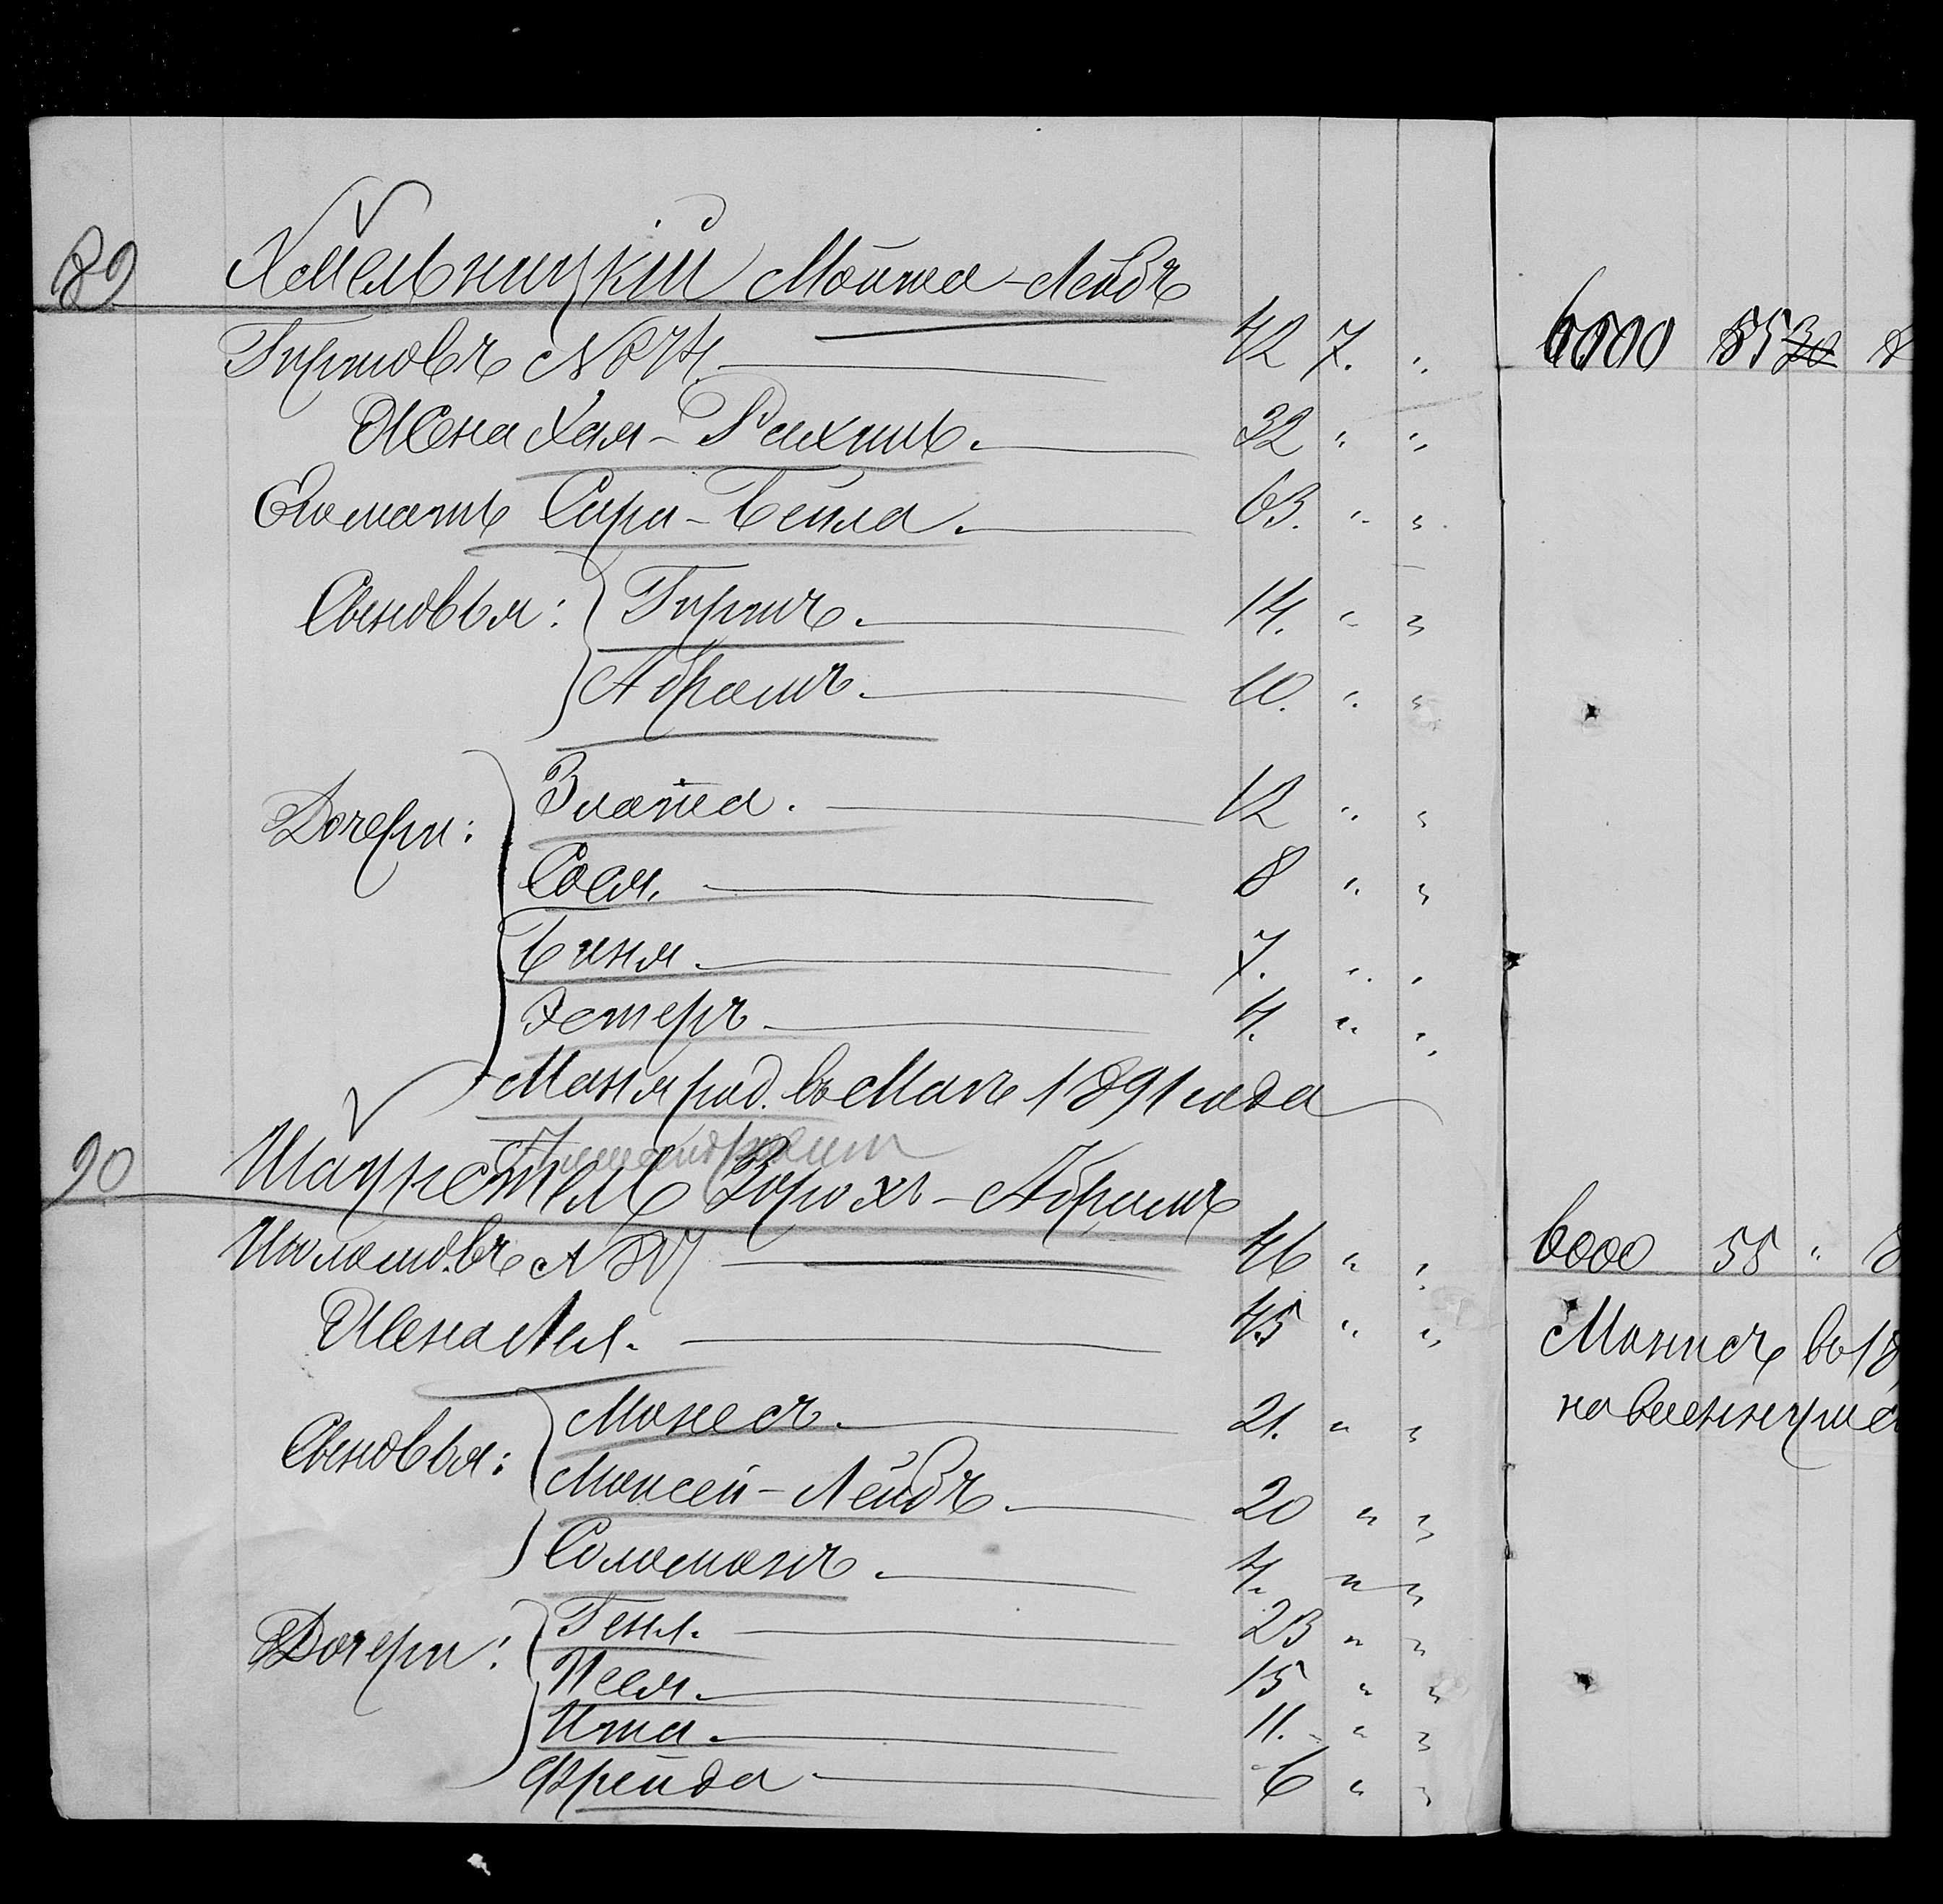 89 Хмельницкій Мошка-Лейбъ
Гиршовъ № 74. 42 7. „ 6000 55
Жена Хая-Рахиль. 32 „ „
Его мать Сура-Бейла. 63. „ „
Сыновья: Гиршъ. 14. „ „
Абрамъ. 10. „ „
Дочери: Злата. 12 „ „
Сося. 8 „ „
Биня. 7. „ „
Эстеръ. 4. „ „
Маня род. въ Маѣ 1891 года
90 Зорохъ-Абрамъ
№ 46 „ „ 6000 55 „
Жена Лея. 45 „ „
Монисъ въ 18
Сыновья: Монесъ. 21. „ „
на военную
Моисей-Лейбъ. 20 „ „
Соломонъ. 4. „ „
Дочери: Геня. 23 „ „
Песя. 15 „ „
Ита. 11. „ „
Фрейда 6 „ „